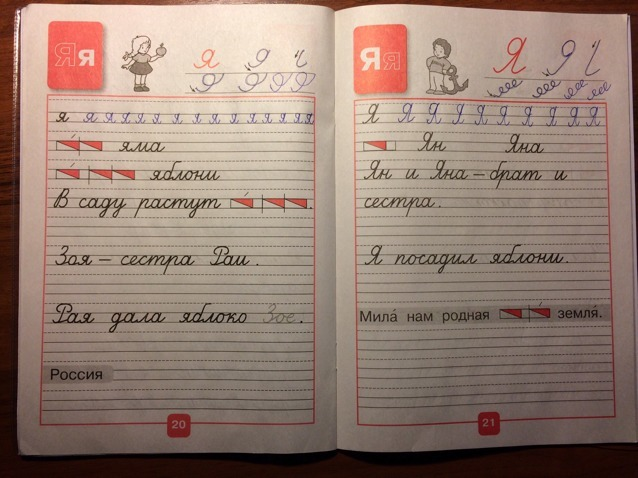 Я я
я я я
я я я я я я я я я я я я я
яма
яблони
В саду растут .
Зоя – сестра Раи.
Рая дала яблоко Зое.
Россия
20
Я я
Я Я
Я Я Я Я Я Я Я Я Я
Ян Яна
Ян и Яна – брат и
сестра.
Я посадил яблони.
Мила́ нам родная земля́.
21